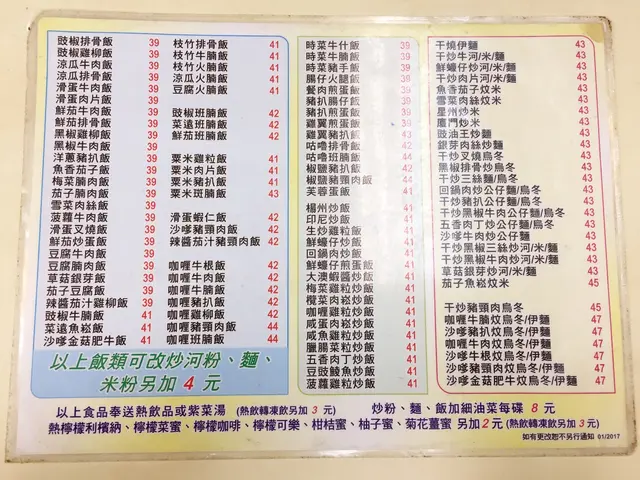 豉椒排骨飯 39
豉椒雞柳飯 39
涼瓜牛肉飯 39
涼瓜排骨飯 39
滑蛋牛肉飯 39
滑蛋肉片飯 39
鮮茄牛肉飯 39
鮮茄排骨飯 39
黑椒雞柳飯 39
黑椒牛肉飯 39
洋蔥豬扒飯 39
魚香茄子飯 39
梅菜腩肉飯 39
茄子腩肉飯 39
雪菜肉絲飯 39
菠蘿牛肉飯 39
滑蛋叉燒飯 39
鮮茄炒蛋飯 39
豆腐牛肉飯 39
豆腐腩肉飯 39
草菇銀芽飯 39
茄子豆腐飯 39
辣醬茄汁雞柳飯 39
豉椒牛腩飯 41
菜遠魚崧飯 41
沙嗲金菇肥牛飯 41
枝竹排骨飯 41
枝竹牛腩飯 41
枝竹火腩飯 41
涼瓜火腩飯 41
豆腐火腩飯 41
豉椒班腩飯 42
菜遠班腩飯 42
鮮茄班腩飯 42
粟米雞粒飯 41
粟米肉片飯 41
粟米豬扒飯 41
粟米斑腩飯 43
滑蛋蝦仁飯 42
沙嗲豬頸肉飯 42
辣醬茄汁豬頸肉飯 42
咖喱牛根飯 42
咖喱牛肉飯 42
咖喱牛腩飯 42
咖喱豬扒飯 42
咖喱雞柳飯 42
咖喱豬頸肉飯 44
咖喱班腩飯 44
以上飯類可改炒河粉、麵、
米粉另加 4 元
時菜牛什飯 39
時菜牛腩飯 39
時菜豬手飯 39
腸仔火腿飯 38
餐肉煎蛋飯 39
豬扒腸仔飯 39
豬扒煎蛋飯 39
雞翼煎蛋飯 39
雞翼豬扒飯 43
咕嚕排骨飯 42
咕嚕班腩飯 44
椒鹽豬扒飯 42
椒鹽豬頸肉飯 44
芙蓉蛋飯 41
楊州炒飯 41
印尼炒飯 41
生炒雞粒飯 41
鮮蠔仔炒飯 41
回鍋肉炒飯 41
鮮蠔仔煎蛋飯 41
大澳蝦醬炒飯 41
梅菜雞粒炒飯 41
欖菜肉崧炒飯 41
咖喱雞粒炒飯 41
咸蛋肉崧炒飯 41
咸魚雞粒炒飯 41
臘腸菜粒炒飯 41
五香肉丁炒飯 41
豆豉鯪魚炒飯 41
菠蘿雞粒炒飯 41
干燒伊麵 43
干炒牛河/米/麵 43
鮮蠔仔炒河/米/麵 43
干炒肉片河/米/麵 43
魚香茄子炆米 43
雪菜肉絲炆米 43
星州炒米 43
廈門炒米 43
豉油王炒麵 43
銀芽肉絲炒麵 43
干炒叉燒烏冬 43
黑椒排骨炒烏冬 43
干炒三絲麵/烏冬 43
回鍋肉炒公仔麵/烏冬 43
干炒豬扒公仔麵/烏冬 43
干炒黑椒牛肉公仔麵/烏冬 43
五香肉丁炒公仔麵/烏冬 43
沙嗲牛肉炒公仔麵 43
干炒黑椒三絲炒河/米/麵 43
干炒黑椒牛肉炒河/米/麵 43
草菇銀芽炒河/米/麵 43
茄子魚崧炆米 45
干炒豬頸肉烏冬 45
咖喱牛腩炆烏冬/伊麵 47
咖喱牛肉炆烏冬/伊麵 47
沙嗲豬扒炆烏冬/伊麵 47
沙嗲牛根炆烏冬/伊麵 47
沙嗲雞柳炆烏冬/伊麵 47
沙嗲金菇肥牛炆烏冬/伊麵 47
以上食品奉送熱飲品或紫菜湯 (熱飲轉凍飲另加 3 元) 炒粉、麵、飯加細油菜每碟 8 元
熱檸檬利賓納、檸檬菜蜜、檸檬咖啡、檸檬可樂、柑桔蜜、柚子蜜、菊花薑蜜 另加2元 (熱飲轉凍飲另加3元)
如有更改恕不另行通知 01/2017